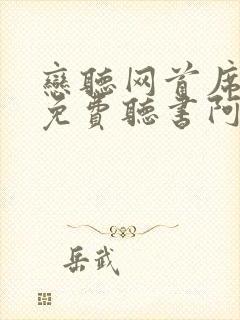 戀聽网首席
免費聽書阿
岳武